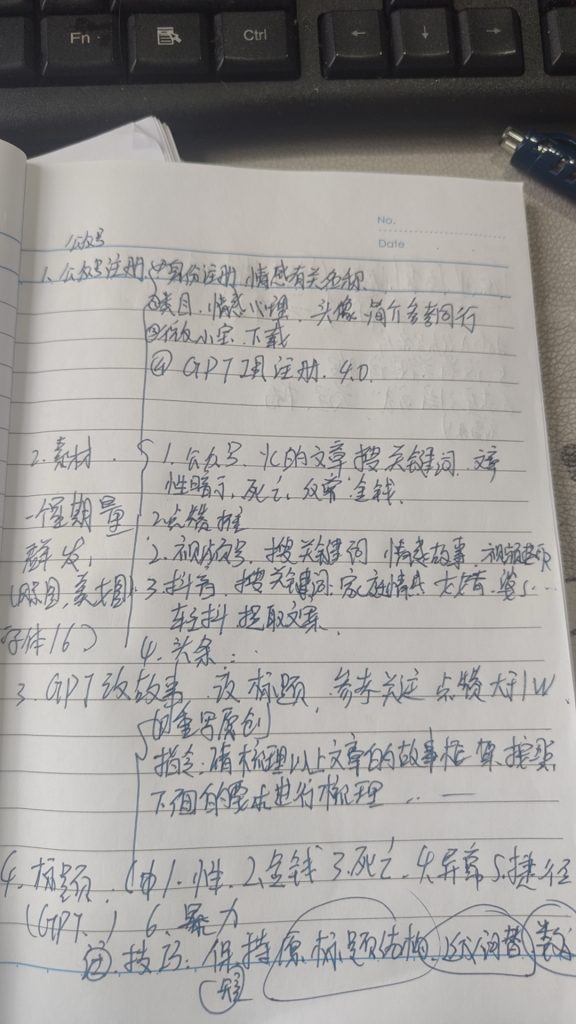 Fn
Ctrl
No.
Date
公众号
1. 公众号注册 ①身份注册 情感有关名称
②类目, 情感心理, 头像 简介参考同行
下载
④ GPT 注册. 4.0.
2. 素材. 1. 公众号. 的文章 搜关键词.
性暗示, 死亡, 金钱.
一个星期量 2. 点赞
群发, 2. 视频号, 搜关键词 情感故事
3. 抖音, 搜关键词. 家庭情
字体16) 轻抖 提取文案.
4. 头条..
3. GPT改故事. 改标题, 参考关注 点赞大于1W
的重写原创
指令: 请梳理以上文章的故事框架, 按照
下面的要求进行梳理 .. —
4. 标题. 1. 性. 2. 金钱 3. 死亡. 4. 异常 5. 捷径
(GPT.) 6. 暴力
技巧: 保持原标题结构,